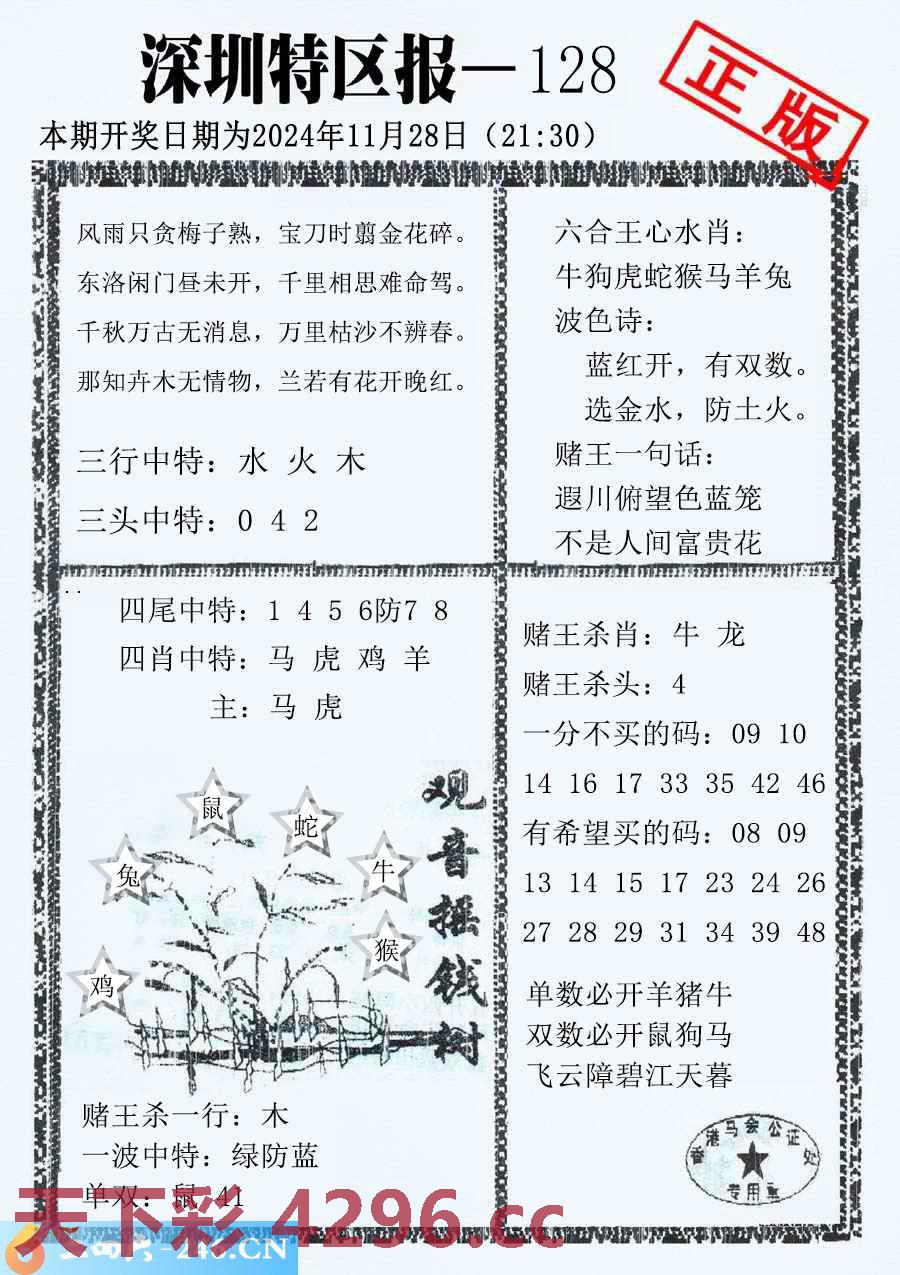 深圳特区报—128
正版
本期开奖日期为2024年11月28日（21:30）
风雨只贪梅子熟，宝刀时翦金花碎。
东洛闲门昼未开，千里相思难命驾。
千秋万古无消息，万里枯沙不辨春。
那知卉木无情物，兰若有花开晚红。
三行中特：水 火 木
三头中特：0 4 2
六合王心水肖：
牛狗虎蛇猴马羊兔
波色诗：
蓝红开，有双数。
选金水，防土火。
赌王一句话：
遐川俯望色蓝笼
不是人间富贵花
四尾中特：1 4 5 6防7 8
四肖中特：马 虎 鸡 羊
主：马 虎
鼠
蛇
兔
牛
猴
鸡
观音摇钱树
赌王杀一行：木
一波中特：绿防蓝
单双：鼠 41
赌王杀肖：牛 龙
赌王杀头：4
一分不买的码：09 10
14 16 17 33 35 42 46
有希望买的码：08 09
13 14 15 17 23 24 26
27 28 29 31 34 39 48
单数必开羊猪牛
双数必开鼠狗马
飞云障碧江天暮
香港马会公证处
专用章
天下彩 4296.cc
246.CN